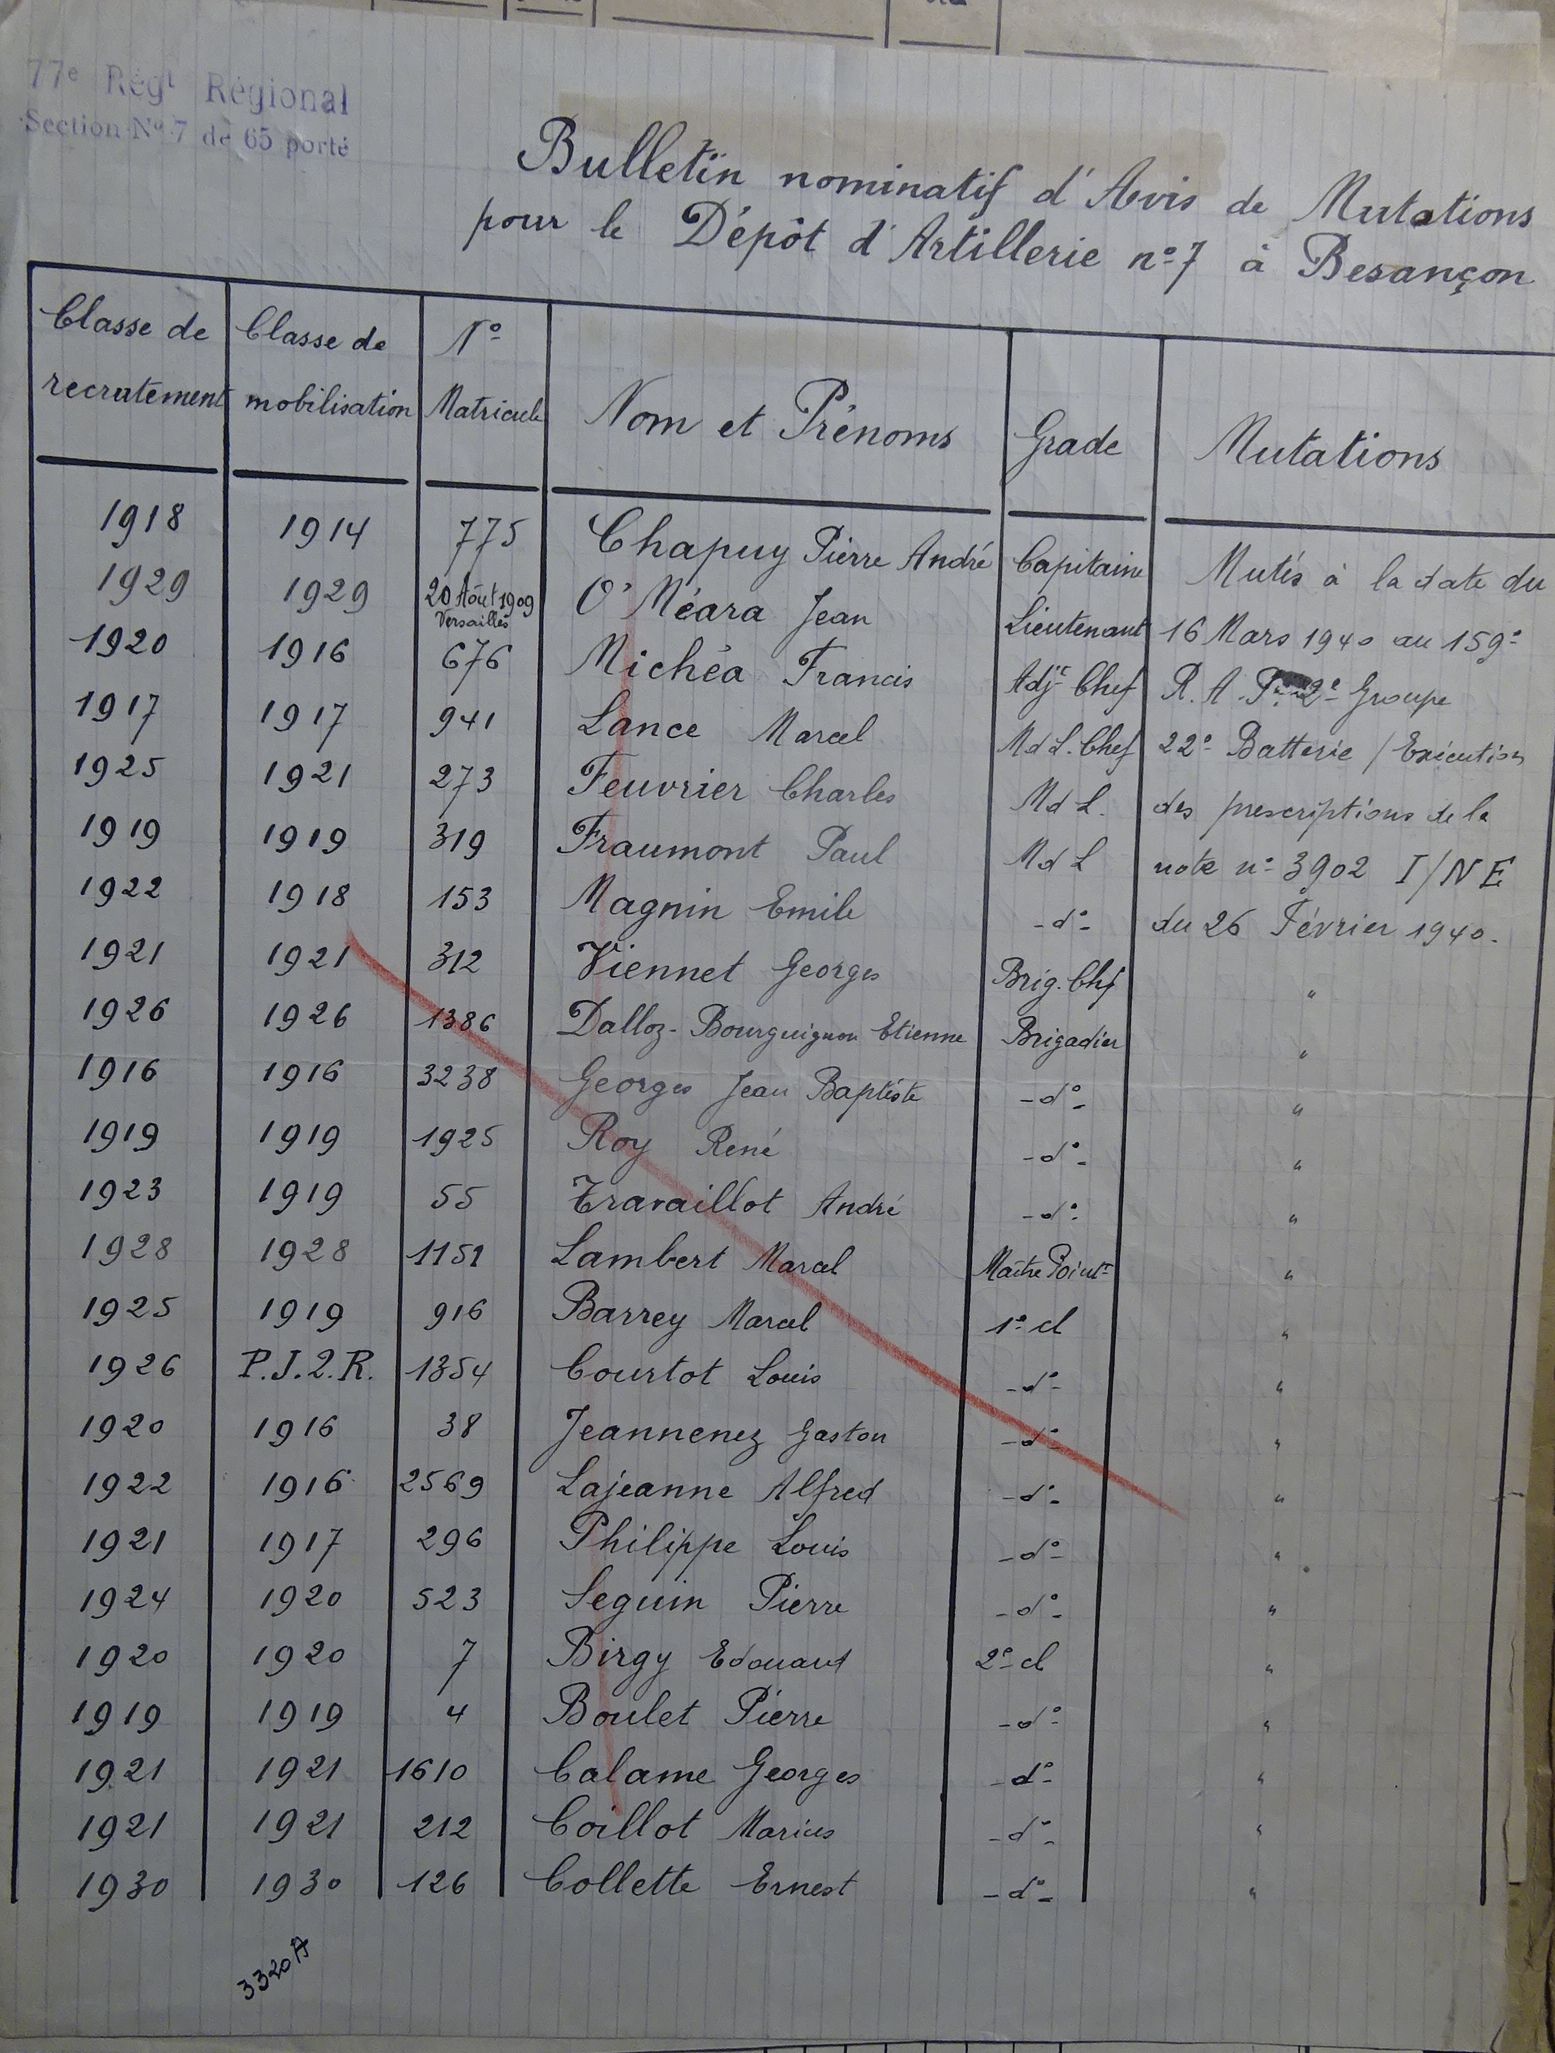 77e Régt Régional
Section No 7 de 65 porté
Bulletin nominatif d'Avis de Mutations
pour le Dépôt d'Artillerie no 7 à Besançon
Classe de recrutement Classe de mobilisation No Matricule Nom et Prénoms Grade Mutations
1918 1914 775 Chapuy Pierre André Capitaine Mutés à la date du
1929 1929 20 Août 1909 Versailles O'Méara Jean Lieutenant 16 Mars 1940 au 159e
1920 1916 676 Michéa Francis Adjt Chef R. A. P. 2e Groupe
1917 1917 941 Lance Marcel Md L. Chef 22e Batterie / Exécution
1925 1921 273 Feuvrier Charles Md L. des prescriptions de la
1919 1919 319 Fraumont Paul Md L note no 3902 I/NE
1922 1918 153 Magnin Emile -do- du 26 Février 1940.
1921 1921 312 Viennet Georges Brig. Chf "
1926 1926 1386 Dalloz-Bourguignon Etienne Brigadier "
1916 1916 3238 Georges Jean Baptiste -do- "
1919 1919 1925 Roy René -do- "
1923 1919 55 Travaillot André -do- "
1928 1928 1151 Lambert Marcel Maître Point "
1925 1919 916 Barrey Marcel 1e cl "
1926 P.J.2.R. 1354 Courtot Louis -do- "
1920 1916 38 Jeannenez Gaston -do- "
1922 1916 2569 Lajeanne Alfred -do- "
1921 1917 296 Philippe Louis -do- "
1924 1920 523 Seguin Pierre -do- "
1920 1920 7 Birgy Edouard 2e cl "
1919 1919 4 Boulet Pierre -do- "
1921 1921 1610 Calame Georges -do- "
1921 1921 212 Coillot Marius -do- "
1930 1930 126 Collette Ernest -do- "
3320A